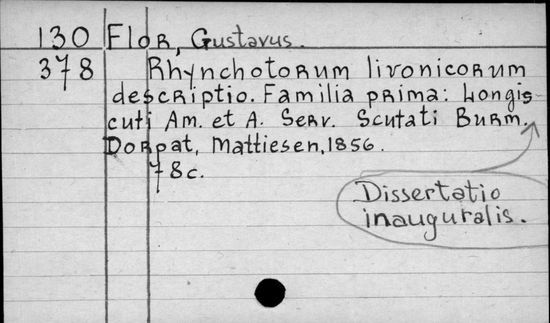 130 Flor, Gustavus.
378 Rhynchotorum livonicorum
descriptio. Familia prima: Longis
cuti Am. et A. Serv. Scutati Burm.
Dorpat, Mattiesen, 1856.
78c.
Dissertatio
inauguralis.